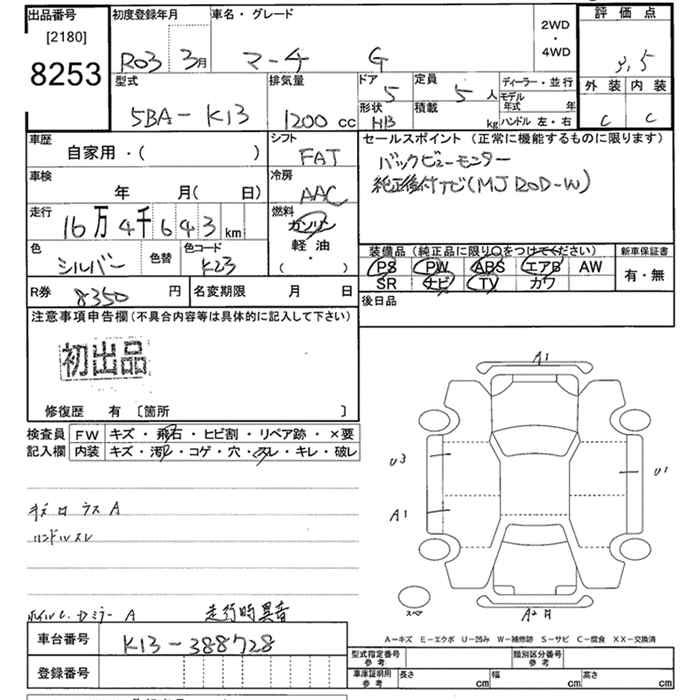 出品番号
[2180]
8253
初度登録年月
R03 3月
車名・グレード
マーチ G
2WD
・
4WD
評価点
3,5
外装 内装
C C
型式
5BA-K13
排気量
1200 cc
ドア
5
形状
HB
定員
5 人
積載
kg
ディーラー・並行
モデル年式 年
ハンドル 左・右
車歴
自家用・( )
シフト
FAT
セールスポイント (正常に機能するものに限ります)
バックビューモニター
純正後付ナビ(MJ20D-W)
車検
年 月( 日)
冷房
AAC
走行
16万4千643km
燃料
ガソリン
軽油
( ・ )
色
シルバー
色替
色コード
K23
装備品 (純正品に限り○をつけてください)
PS PW ABS エアB AW
SR ナビ TV カワ
新車保証書
有・無
R券
8350 円
名変期限 月 日
後日品
注意事項申告欄 (不具合内容等は具体的に記入して下さい)
初出品
修復歴 有 [箇所 ]
検査員
記入欄
FW キズ・飛石・ヒビ割・リペア跡・×要
内装 キズ・汚レ・コゲ・穴・スレ・キレ・破レ
A1
U3
U1
A1
スペア
A2
A
ハンドルスレ
A 走行時異音
A-キズ E-エクボ U-凹み W-補修跡 S-サビ C-腐食 XX-交換済
車台番号
K13-388728
登録番号
型式指定番号
参考
類別区分番号
参考
車庫証明用
参考
長さ cm
幅 cm
高さ cm